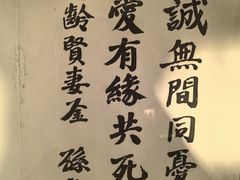 誠無間同憂
愛有緣共死
齡賢妻金 孫